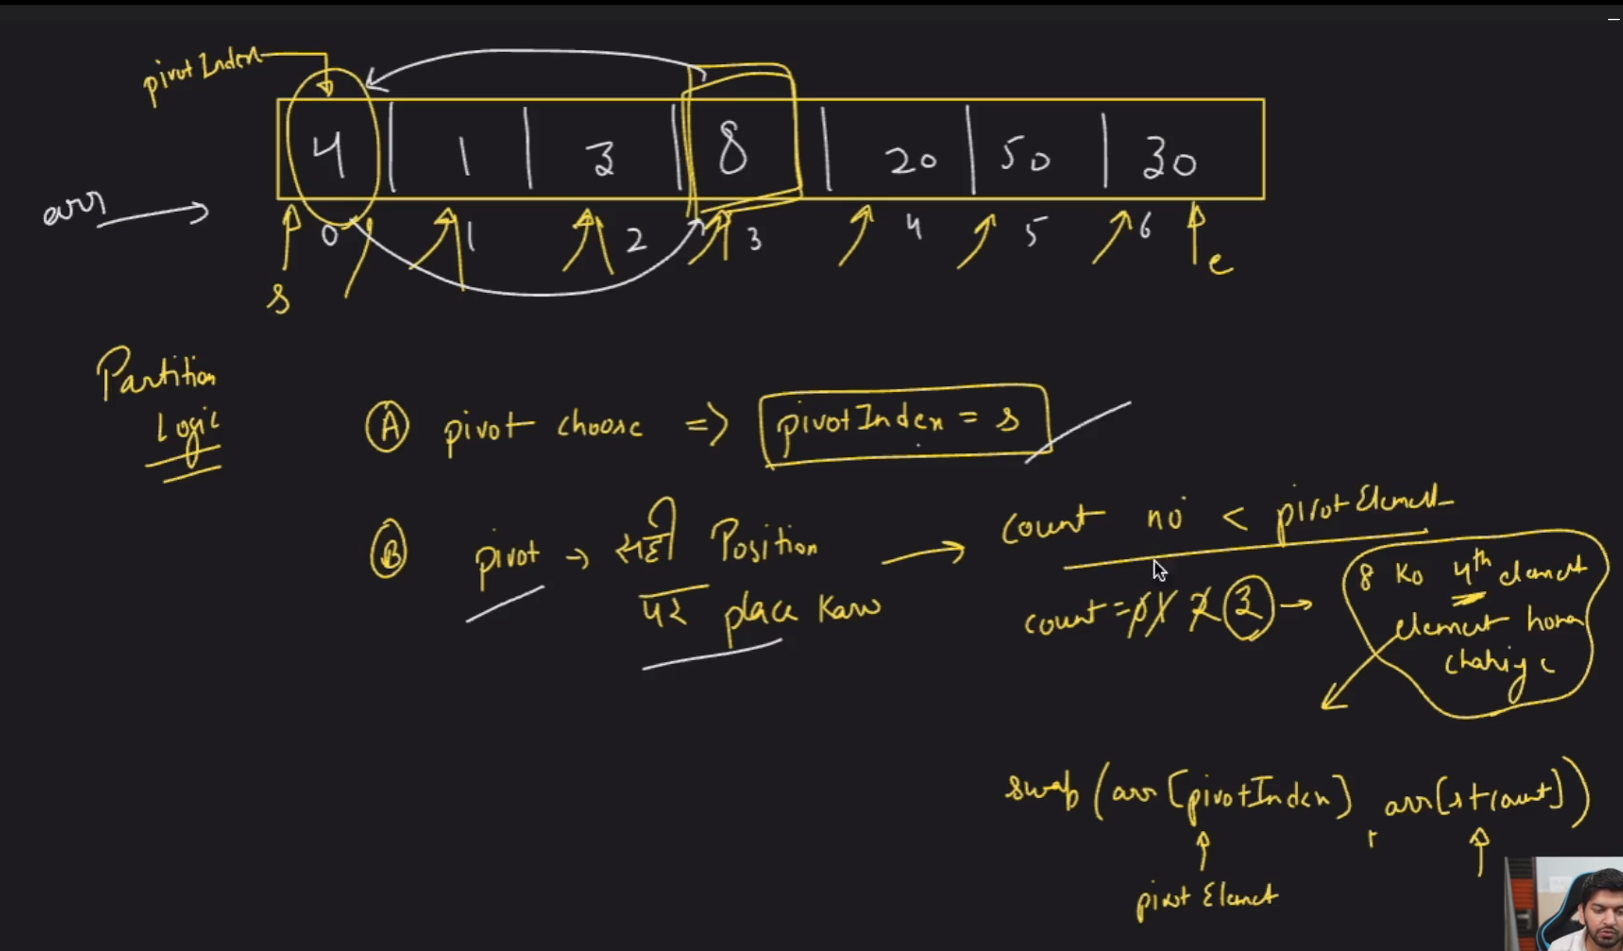 pivotIndex
4 1 3 8 20 50 30
arr
0 1 2 3 4 5 6
s e
Partition
Logic
A pivot choose => pivotIndex = s
B pivot → सही Position → count no < pivotElement
पर place Karo
count = 0 1 2 3 →
8 Ko 4th element
element hona
chahiye
swap (arr[pivotIndex] , arr[s+count])
pivot Element